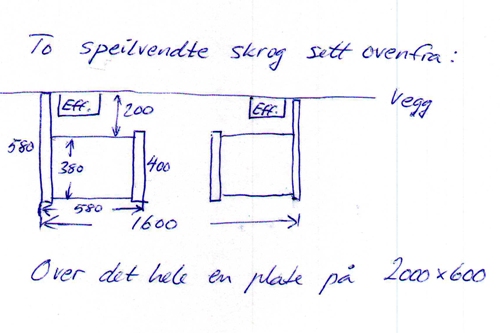 To speilvendte skrog sett ovenfra:
Vegg
Eff. 200 Eff.
580 380 400
580
1600
Over det hele en plate på 2000x600